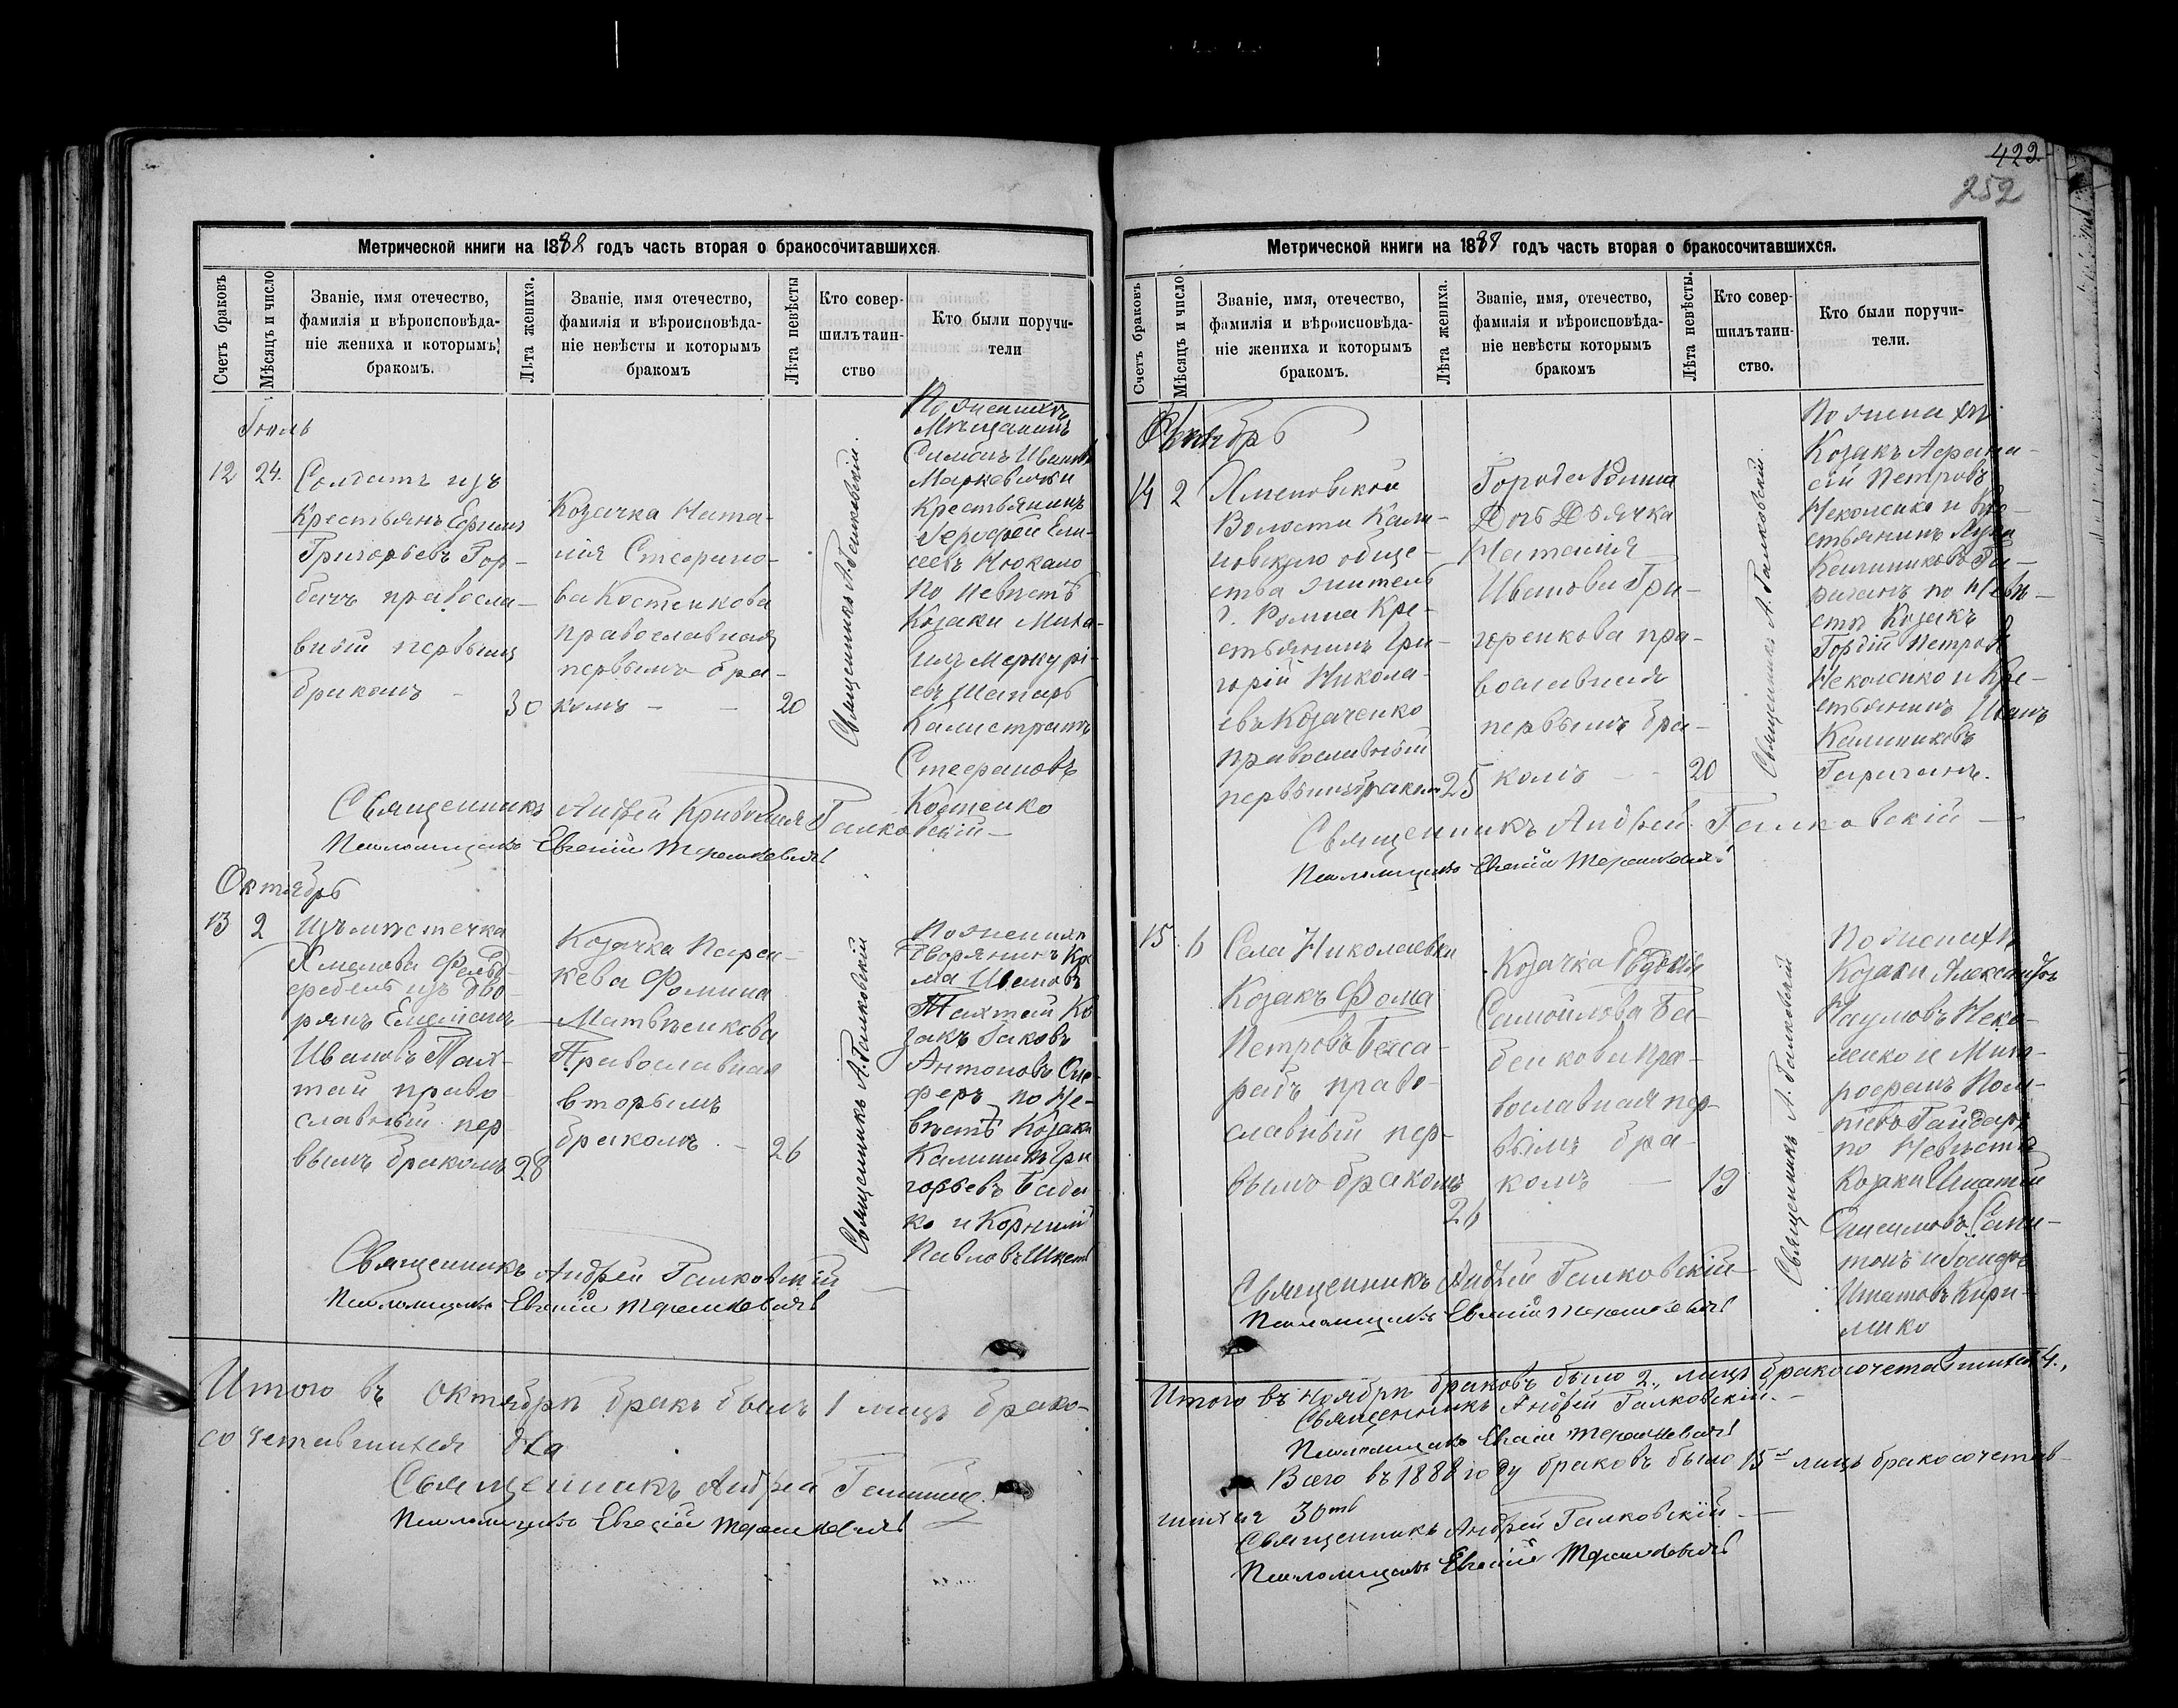 422
252
Метрической книги на 1888 годъ часть вторая о бракосочитавшихся.
Счетъ браковъ
Мѣсяцъ и число
Званіе, имя отечество,
фамилія и вѣроисповѣда-
ніе жениха и которымъ
бракомъ.
Лѣта жениха.
Званіе, имя отечество,
фамилія и вѣроисповѣда-
ніе невѣсты и которымъ
бракомъ
Лѣта невѣсты
Кто совер-
шилъ таин-
ство
Кто были поручи-
тели
Іюль
12
24.
Солдатъ изъ
Крестьянъ Ефимъ
Григорьевъ Гор-
бачъ правосла-
вный первымъ
бракомъ
30
Козачка Ната-
лія Стефано-
ва Костенкова
православная
первымъ бра-
комъ
20
Священникъ А. Галковскій.
По женихѣ
Мѣщанинъ
Симонъ Ивановъ
Маркевичъ и
Крестьянинъ
Герофей Ели-
сеевъ
По невѣстѣ
Козаки Миха-
илъ Меркурі-
евъ Шапарь
Калистратъ
Стефановъ
Костенко
Священникъ Андрей Галковскій
Псаломщикъ Евгеній Терешкевичъ
Октябрь
13
2
Изъ мѣстечка
Хмелова Фельд-
фебель изъ дво-
рянъ
Ивановъ Тах-
тай право
славный пер
вымъ бракомъ
28
Козачка Парас-
кева Фомина
Матвѣенкова
Православная
вторымъ
бракомъ
26
Священникъ А. Галковскій
По женихѣ
Дворянинъ
Ивановъ
Тахтай Ко
закъ Яковъ
Антоновъ
по Не-
вѣстѣ Козаки
Калиникъ Гри
горьевъ Бабен
ко и Корнилій
Павловъ
Священникъ Андрей Галковскій
Псаломщикъ Евгеній Терешкевичъ
Итого въ Октябрѣ бракъ былъ 1 лицъ брако-
сочетавшихся два
Священникъ Андрей
Псаломщикъ Евгеній Терешкевичъ
Метрической книги на 1888 годъ часть вторая о бракосочитавшихся.
Счетъ браковъ
Мѣсяцъ и число
Званіе, имя, отечество,
фамилія и вѣроисповѣда-
ніе жениха и которымъ
бракомъ.
Лѣта жениха.
Званіе, имя, отечество,
фамилія и вѣроисповѣда-
ніе невѣсты которымъ
бракомъ
Лѣта невѣсты.
Кто совер-
шилъ таин-
ство.
Кто были поручи-
тели.
14
2
Хмеловской
Волости Кали-
новскаго обще-
ства житель
г. Ромна Кре-
стьянинъ Гри-
горій Никола-
евъ Козаченко
православный
первымъ бракомъ
25
Города Ромна
Дочь Дьячка
Наталія
Иванова Гри-
горенкова пра-
вославная
первымъ бра-
комъ
20
Священникъ А. Галковскій.
По женихѣ
Козакъ Афана-
сій Петровъ
и Кре-
стьянинъ Лука
Калиниковъ Га-
ричанъ по Невѣ-
стѣ Козакъ
Гордій Петровъ
и Кре-
стьянинъ Иванъ
Калиниковъ
Гаричанъ.
Священникъ Андрей Галковскій
Псаломщикъ Евгеній Терешкевичъ
15
6
Села Николаевки
Козакъ Фома
Петровъ Бааса-
рабъ право-
славный пер-
вымъ бракомъ
26
Козачка Евдокія
Самойлова Ба-
бенкова пра-
вославная пер-
вымъ бра-
комъ
19
Священникъ А. Галковскій
По женихѣ
Козаки Александръ
Наумовъ
и Мит-
рофанъ
Гайдаръ
по Невѣстѣ
Козаки Игнатій
Игнатовъ Кири-
Священникъ Андрей Галковскій
Псаломщикъ Евгеній Терешкевичъ
Итого въ Ноябрѣ браковъ было 2., лицъ бракосочетавшихся 4.,
Священникъ Андрей Галковскій.
Псаломщикъ Евгеній Терешкевичъ
Всего въ 1888 году браковъ было 15ть лицъ бракосочетав-
шихся 30ть
Священникъ Андрей Галковскій
Псаломщикъ Евгеній Терешкевичъ